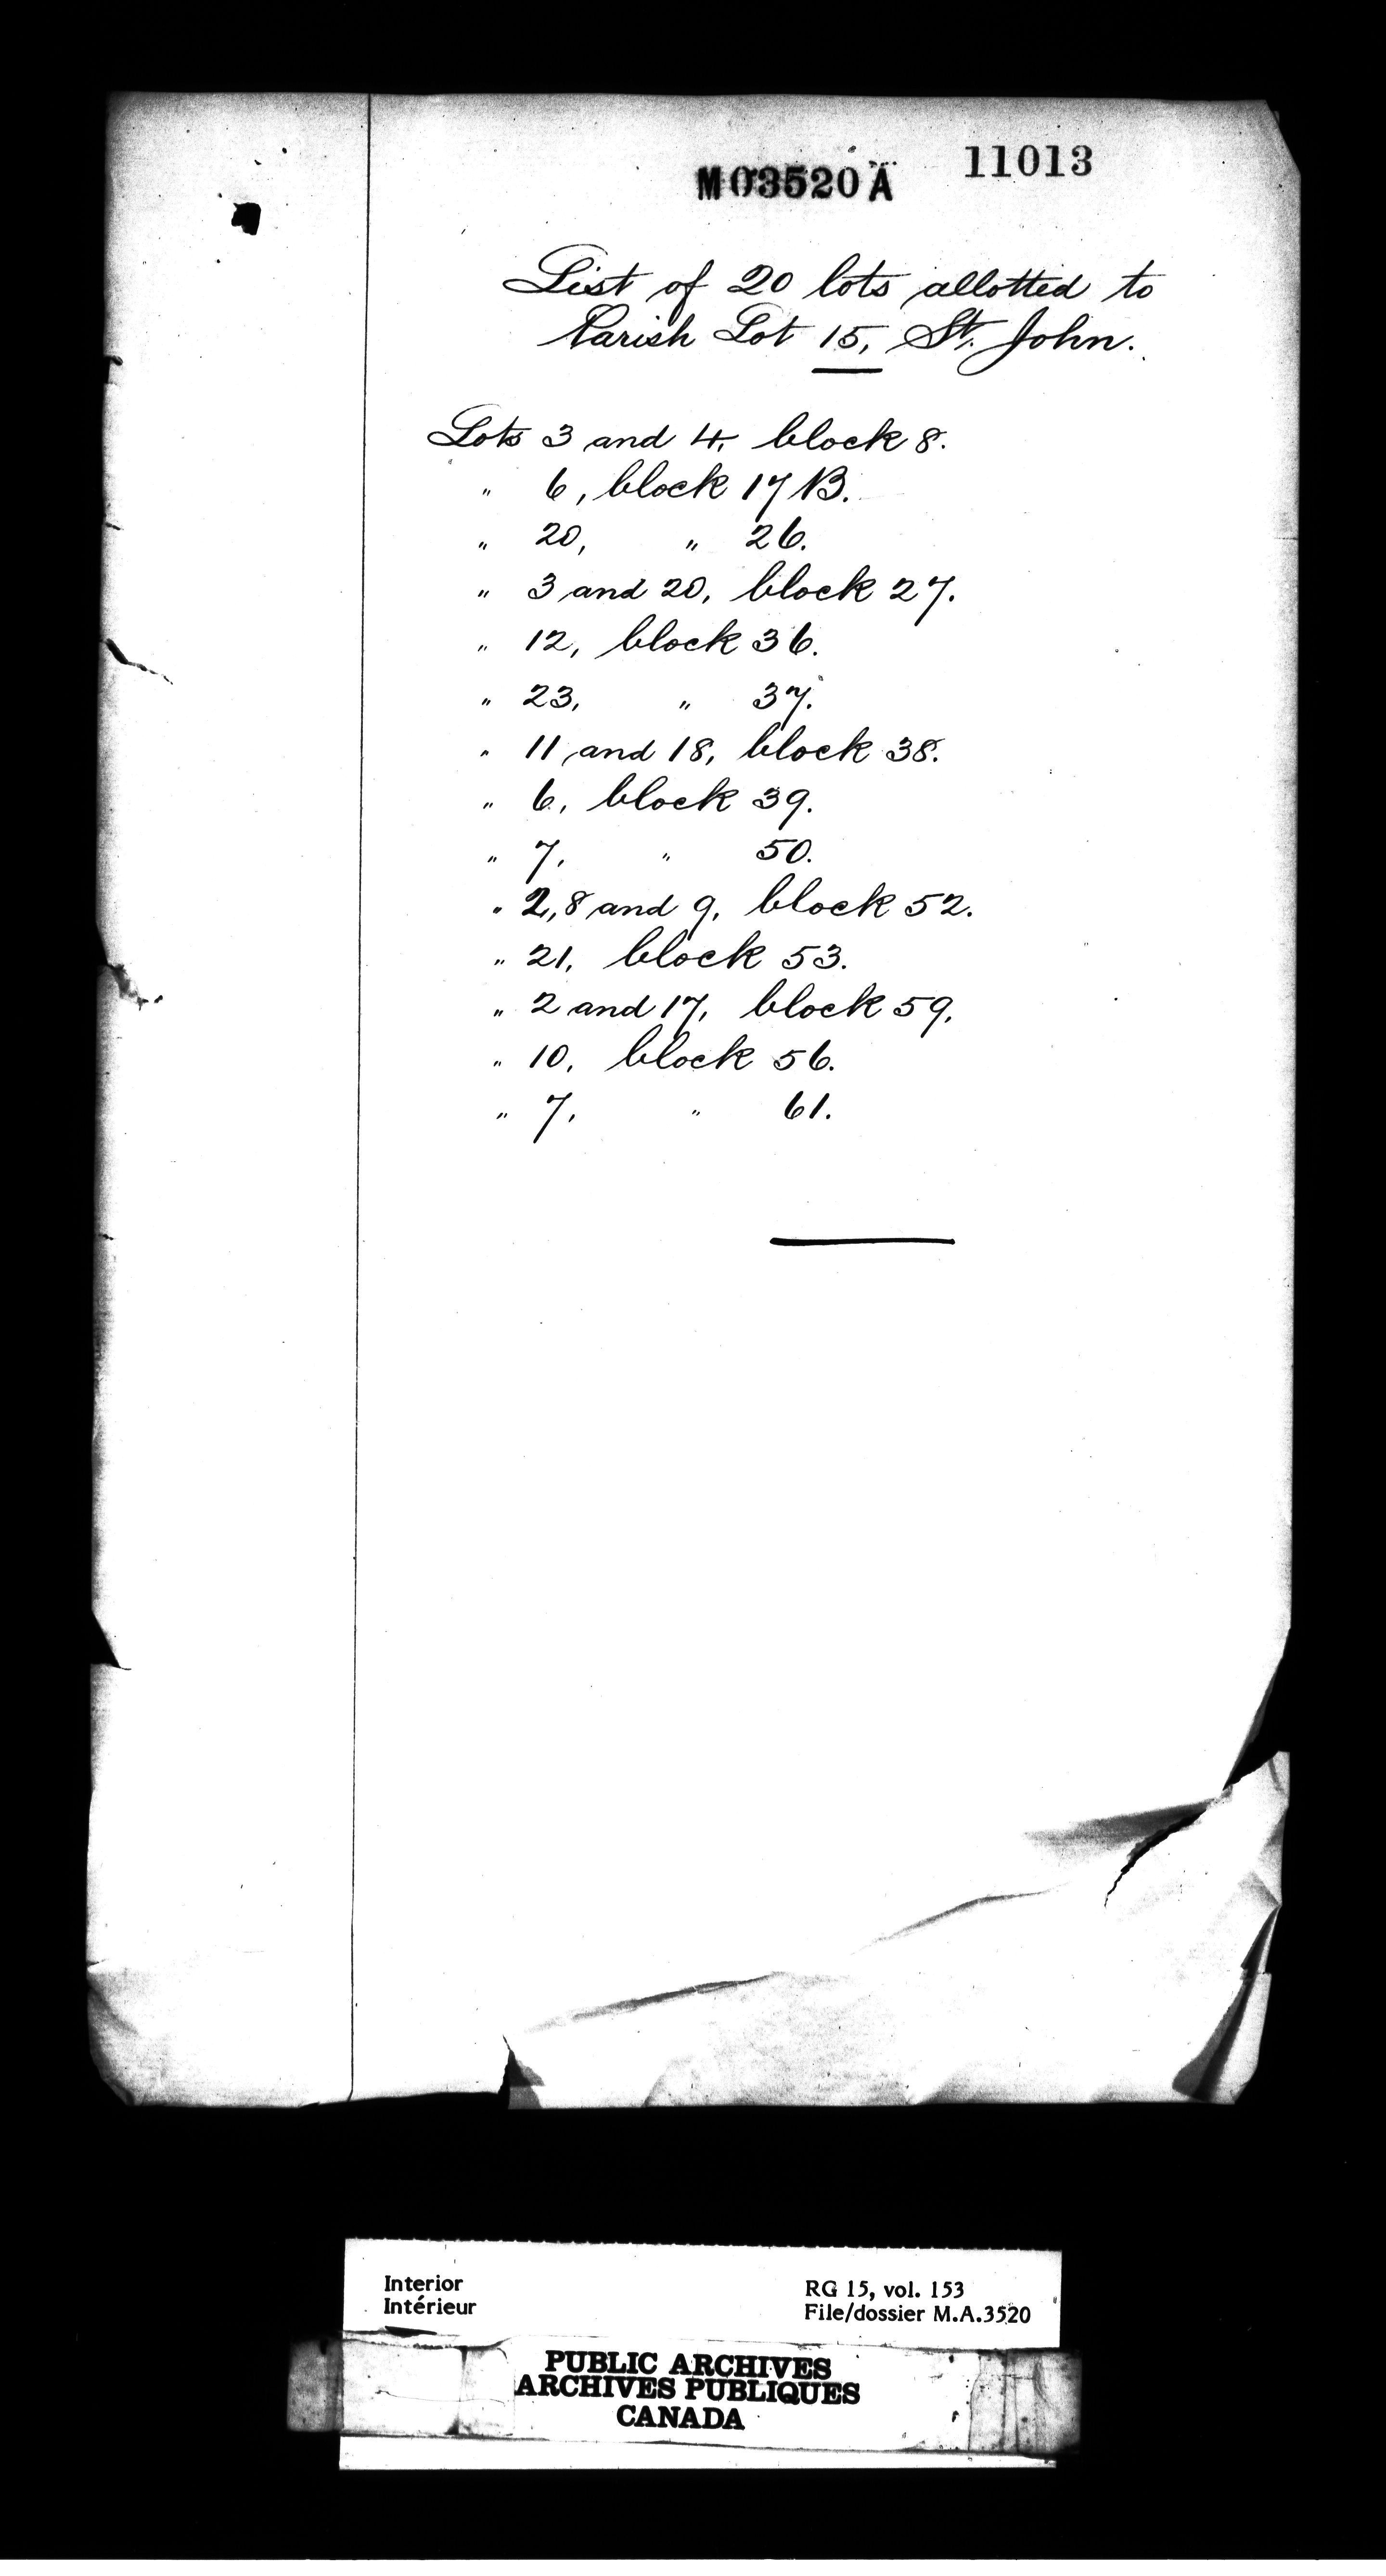 M03520A 11013
List of 20 lots allotted to
Parish Lot 15, St. John.
Lots 3 and 4, block 8.
" 6, block 17 B.
" 20, " 26.
" 3 and 20, block 27.
" 12, block 36.
" 23, " 37.
" 11 and 18, block 38.
" 6, block 39.
" 7, " 50.
" 2, 8 and 9, block 52.
" 21, block 53.
" 2 and 17, block 59.
" 10, block 56.
" 7, " 61.
Interior RG 15, vol. 153
Intérieur File/dossier M.A.3520
PUBLIC ARCHIVES
ARCHIVES PUBLIQUES
CANADA